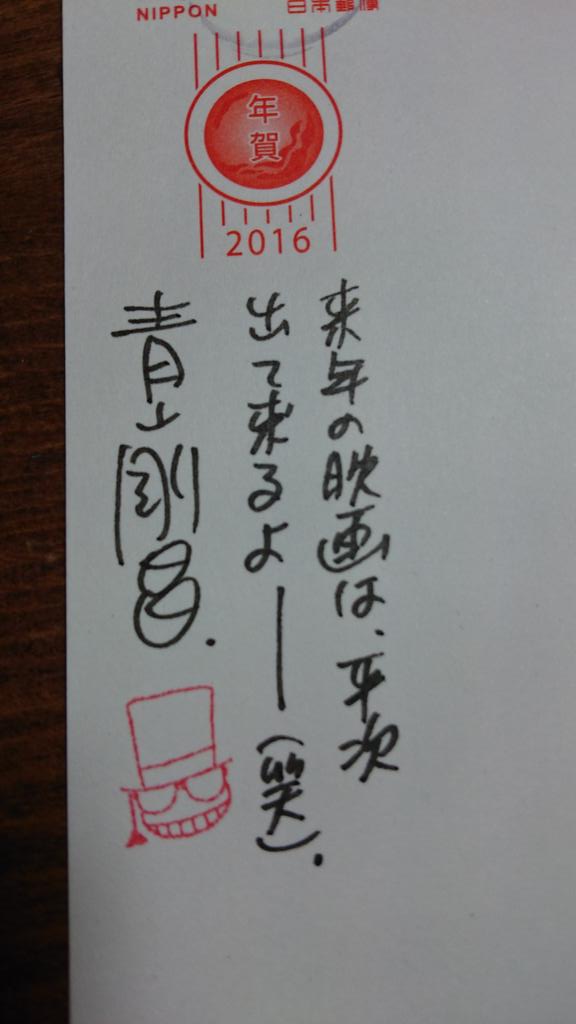 NIPPON 日本郵便
年賀
2016
来年の映画は、平次
出て来るよー(笑).
青山剛昌.